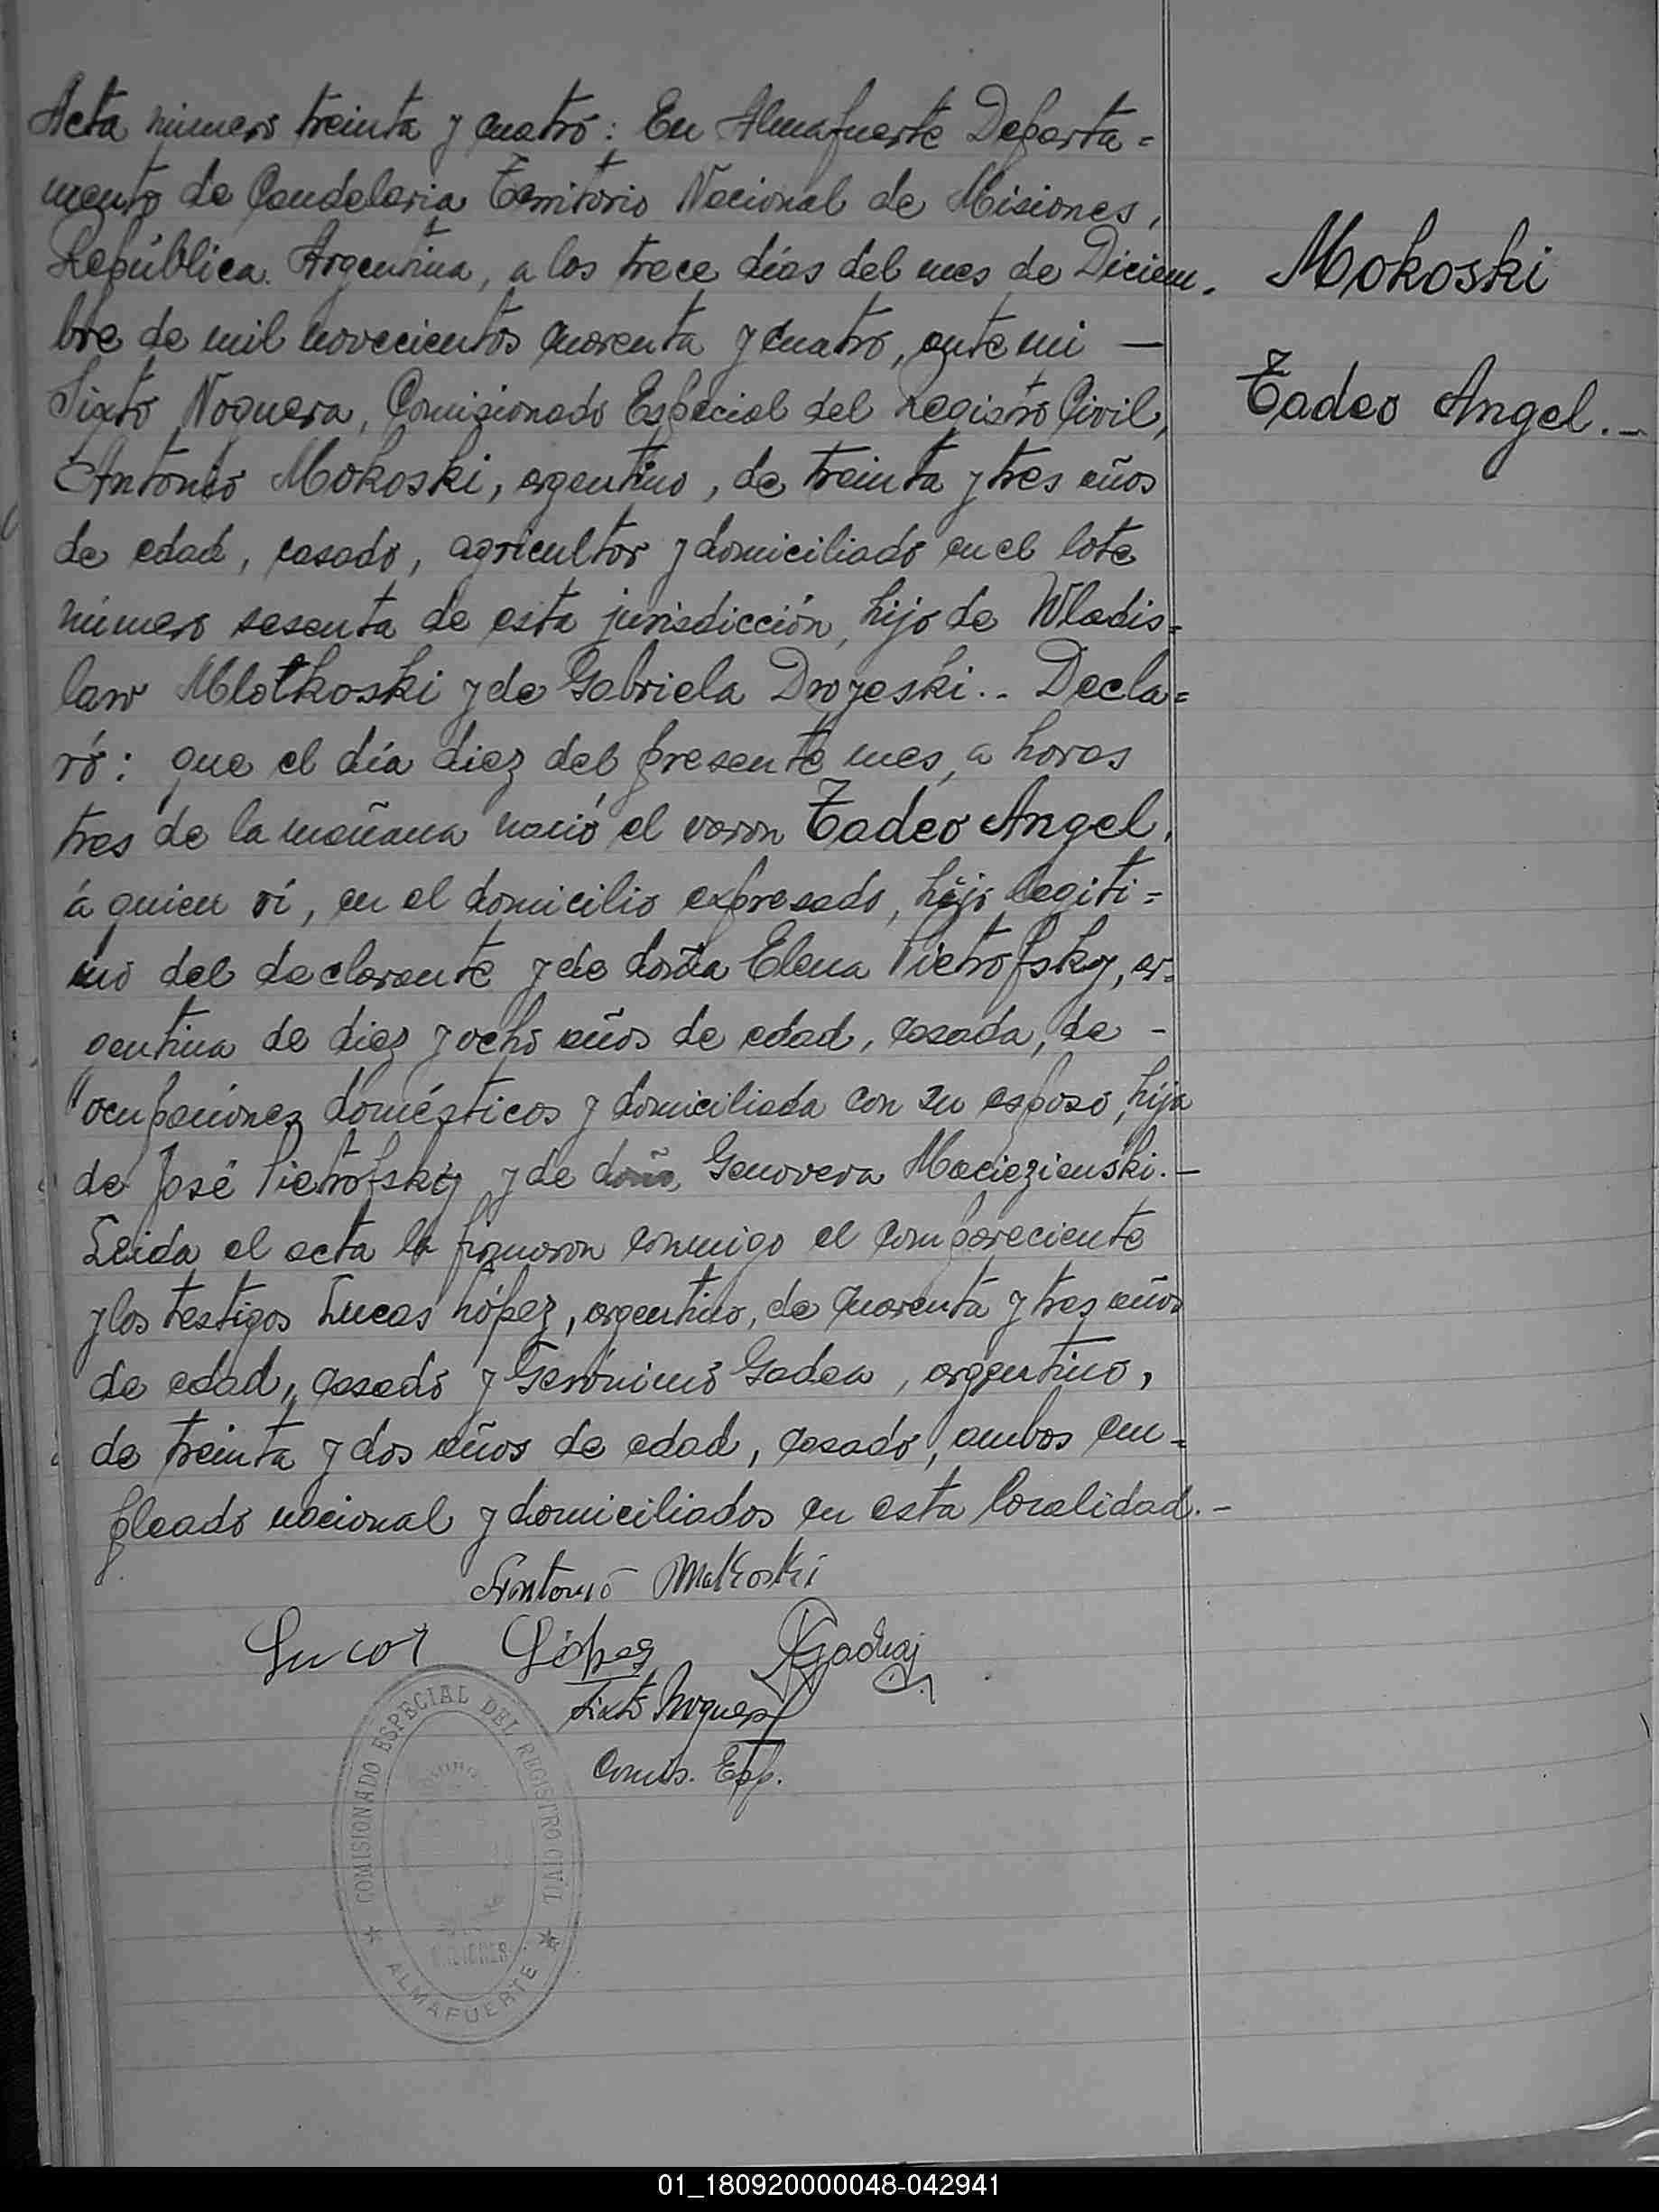 Acta número treinta y cuatro: En Almafuerte Departa=
mento de Candelaria Territorio Nacional de Misiones,
República Argentina, a los trece días del mes de Diciem-
bre de mil novecientos cuarenta y cuatro, ante mi —
Sixto Noguera, Comisionado Especial del Registro Civil,
Antonio Mokoski, argentino, de treinta y tres años
de edad, casado, agricultor y domiciliado en el lote
número sesenta de esta jurisdicción, hijo de Wladis=
law Mlotkoski y de Gabriela Drozeski.- Decla=
ró: que el día diez del presente mes, a horas
tres de la mañana nació el varon Tadeo Angel,
á quien ví, en el domicilio expresado, hijo legiti=
mo del declarante y de doña Elena Pietrofsky, ar=
gentina de diez y ocho años de edad, casada, de -
ocupaciones domésticas y domiciliada con su esposo, hija
de José Pietrofsky y de doña Genoveva Maciezienski.-
Leida el acta la firmaron conmigo el compareciente
y los testigos Lucas López, argentino, de cuarenta y tres años
de edad, casado y Gerónimo Gadea, argentino,
de treinta y dos años de edad, casado, ambos em=
pleado nacional y domiciliados en esta localidad.-
Antonio Mokoski
Lucas López
Sixto Noguera
Comis. Esp.
COMISIONADO ESPECIAL DEL REGISTRO CIVIL
MISIONES
* ALMAFUERTE *
Mokoski
Tadeo Angel.-
01_180920000048-042941